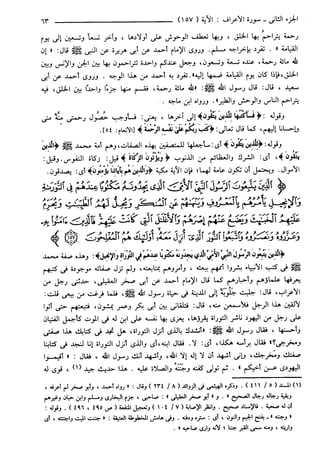 الجزء الثاني ـ سورة الأعراف: الآية (١٥٧) ٦٣
رحمة يتراحم بها الخلق، وبها تعطف الوحوش على أولادها، وأخر تسعاً وتسعين إلى يوم
القيامة». تفرد بإخراجه مسلم. وروى الإمام أحمد عن أبي هريرة عن النبي ﷺ قال: «إن
لله مائة رحمة، عنده تسعة وتسعون، وجعل عندكم واحدة تتراحمون بها بين الجن والإنس وبين
الخلق، فإذا كان يوم القيامة ضمها إليه». تفرد به أحمد من هذا الوجه. وروى أحمد عن أبي
سعيد، قال: قال رسول الله ﷺ: «لله مائة رحمة، فقسم منها جزءاً واحداً بين الخلق، فيه
يتراحم الناس والوحش والطير». ورواه ابن ماجه.
وقوله: ﴿فسأكتبها للذين يتقون﴾ إلى آخرها، يعني: فسأوجب حصول رحمتي منّة مني
وإحساناً إليهم، كما قال تعالى: ﴿كتب ربكم على نفسه الرحمة﴾ [الأنعام: ٥٤].
وقوله: ﴿للذين يتقون﴾ أي: سأجعلها للمتصفين بهذه الصفات، وهم أمة محمد ﷺ ﴿للذين
يتقون﴾، أي: الشرك والعظائم من الذنوب ﴿ويؤتون الزكاة﴾ قيل: زكاة النفوس. وقيل:
الأموال. ويحتمل أن تكون عامة لهما، فإن الآية مكية ﴿والذين هم بآياتنا يؤمنون﴾ أي: يصدقون.
﴿الذين يتبعون الرسول النبي الأمي الذي يجدونه مكتوبا عندهم في التوراة
والإنجيل يأمرهم بالمعروف وينهاهم عن المنكر ويحل لهم الطيبات ويحرم
عليهم الخبائث ويضع عنهم إصرهم والأغلال التي كانت عليهم فالذين آمنوا به
وعزروه ونصروه واتبعوا النور الذي أنزل معه أولئك هم المفلحون﴾
﴿الذين يتبعون الرسول النبي الأمي الذي يجدونه مكتوبا عندهم في التوراة والإنجيل﴾: وهذه صفة محمد
ﷺ في كتب الأنبياء بشروا أممهم ببعثه، وأمروهم بمتابعته، ولم تزل صفاته موجودة في كتبهم
يعرفها علماؤهم وأحبارهم كما قال الإمام أحمد عن أبي صخر العقيلي، حدثني رجل من
الأعراب، قال: جلبت حلوبة إلى المدينة في حياة رسول الله ﷺ، فلما فرغت من بيعي قلت:
لألقين هذا الرجل فلأسمعن منه. قال: فتلقاني بين أبي بكر وعمر يمشون، فتبعتهم حتى أتوا
على رجل من اليهود ناشر التوراة يقرؤها، يعزي بها نفسه على ابن له في الموت كأجمل الفتيان
وأحسنها، فقال رسول الله ﷺ: «أنشدك بالذي أنزل التوراة، هل تجد في كتابك هذا صفتي
ومخرجي؟» فقال برأسه هكذا، أي: لا. فقال ابنه: أي والذي أنزل التوراة إنا لنجد في كتابنا
صفتك ومخرجك، وإني أشهد أن لا إله إلا الله، وأشهد أنك رسول الله، فقال: «أقيموا
اليهودي عن أخيكم». ثم تولى كفنه وجننه والصلاة عليه. هذا حديث جيد (١)، قوي له